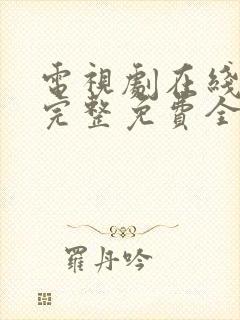 電視劇在綫
完整免費全
羅丹吟